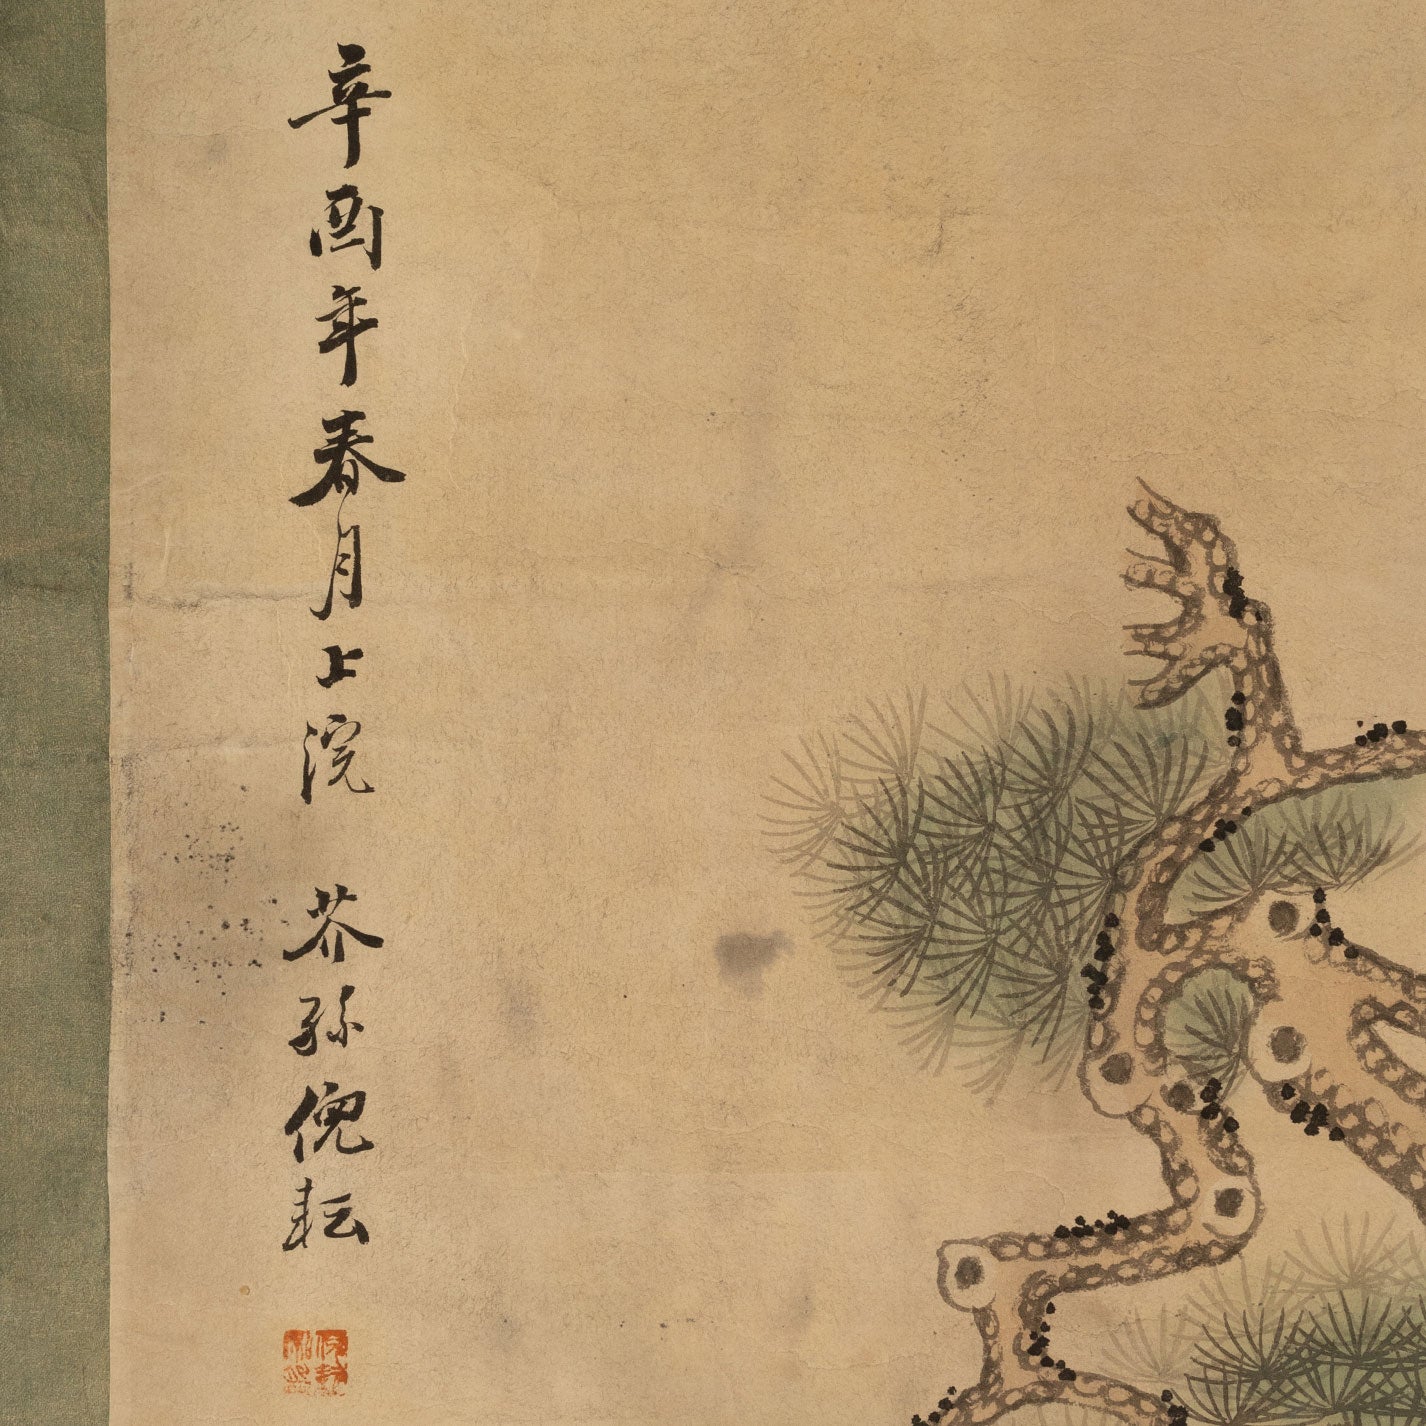 辛酉年春月上浣 芥孫倪耘